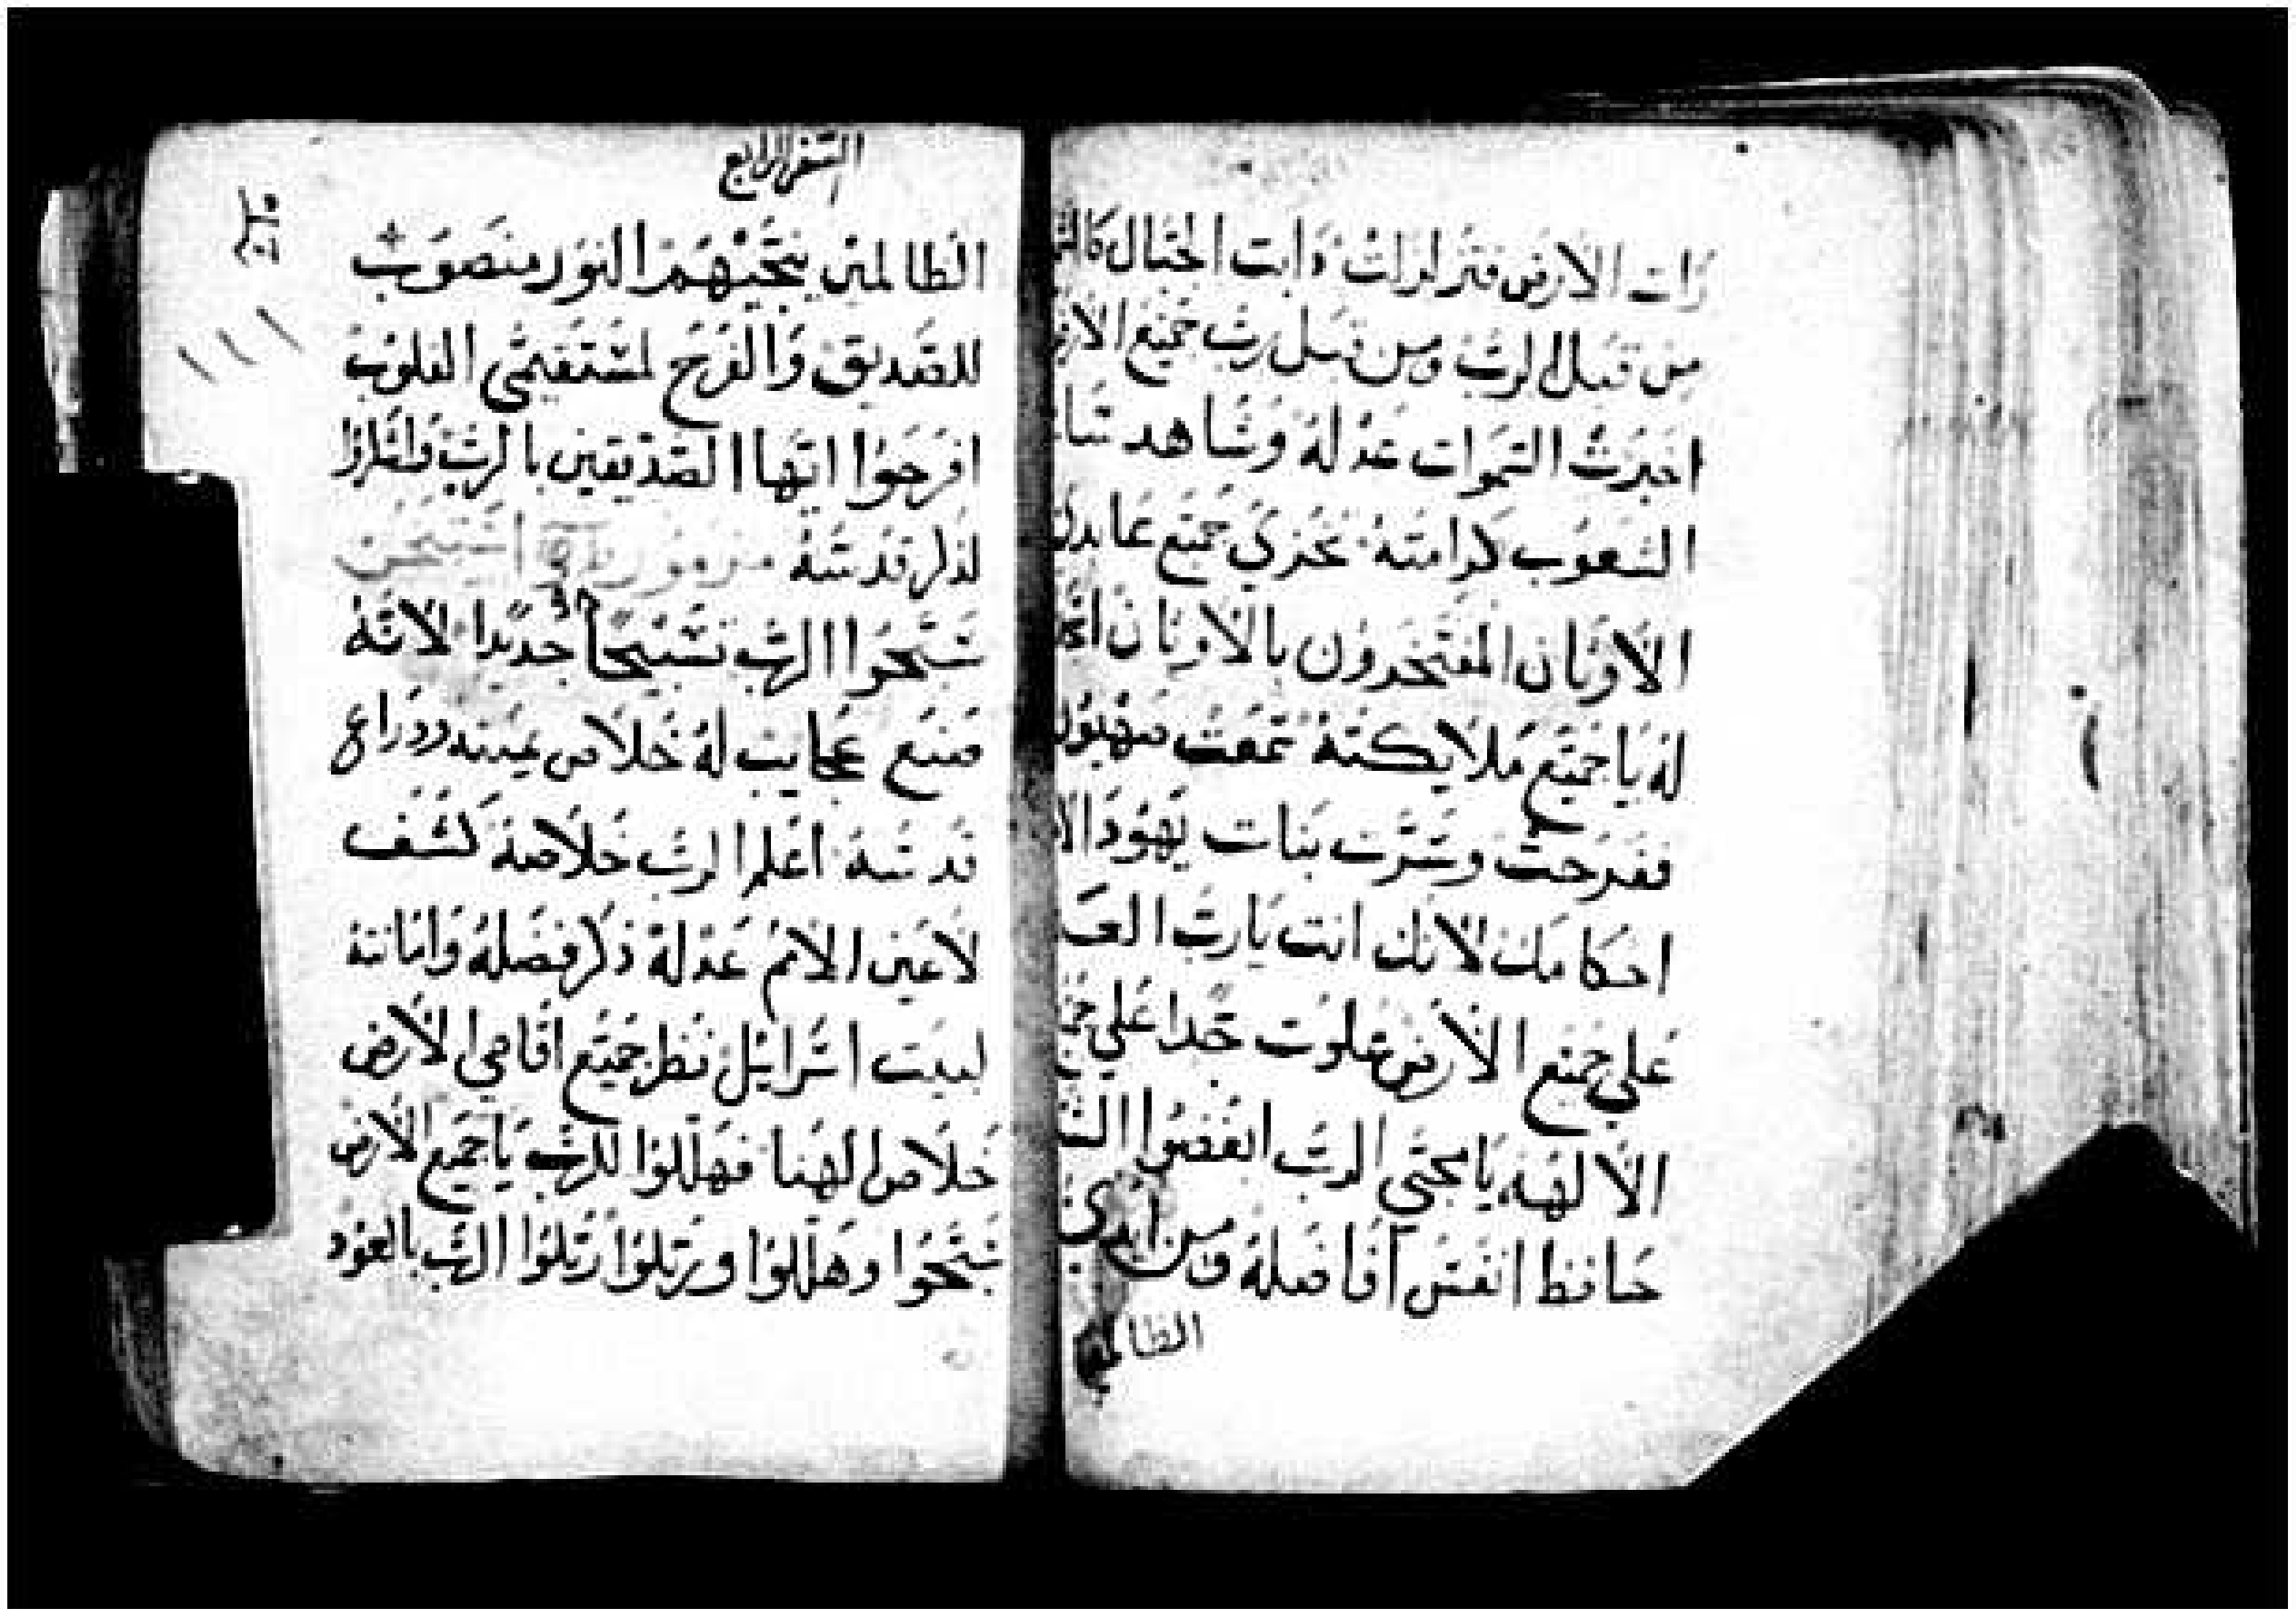 رات الارض فتزلزلت ذابت الجبال
من قبل الرب ومن قبل رب جميع الارض
اخبرت السموات عدله وشاهد
الشعوب كرامته يخزي جميع عابدي
الاوثان المفتخرون بالاوثان
له يا جميع ملايكته سمعت صهيون
ففرحت وسرت بنات يهودا
احكامك لانك انت يا رب
علي جميع الارض علوت جدا علي
الالهه يا محبي الرب ابغضوا
حافظ انفس افاضله ومن ايدي
الظالمين
السفر الرابع
الظالمين ينجيهم النور منصوب
للصديق والفرح لمستقيمي القلوب
افرحوا ايها الصديقين بالرب واشكروا
لذكر قدسه مزمور
سبحوا الرب تسبيحا جديدا لانه
صنع عجايب له خلاص يمينه وذراع
قدسه اعلم الرب خلاصه كشف
لاعين الامم عدله ذكر فضله وامانته
لبيت اسرايل نظر جميع اقاصي الارض
خلاص الهنا فهللوا للرب يا جميع الارض
سبحوا وهللوا ورتلوا رتلوا الرب بالعود